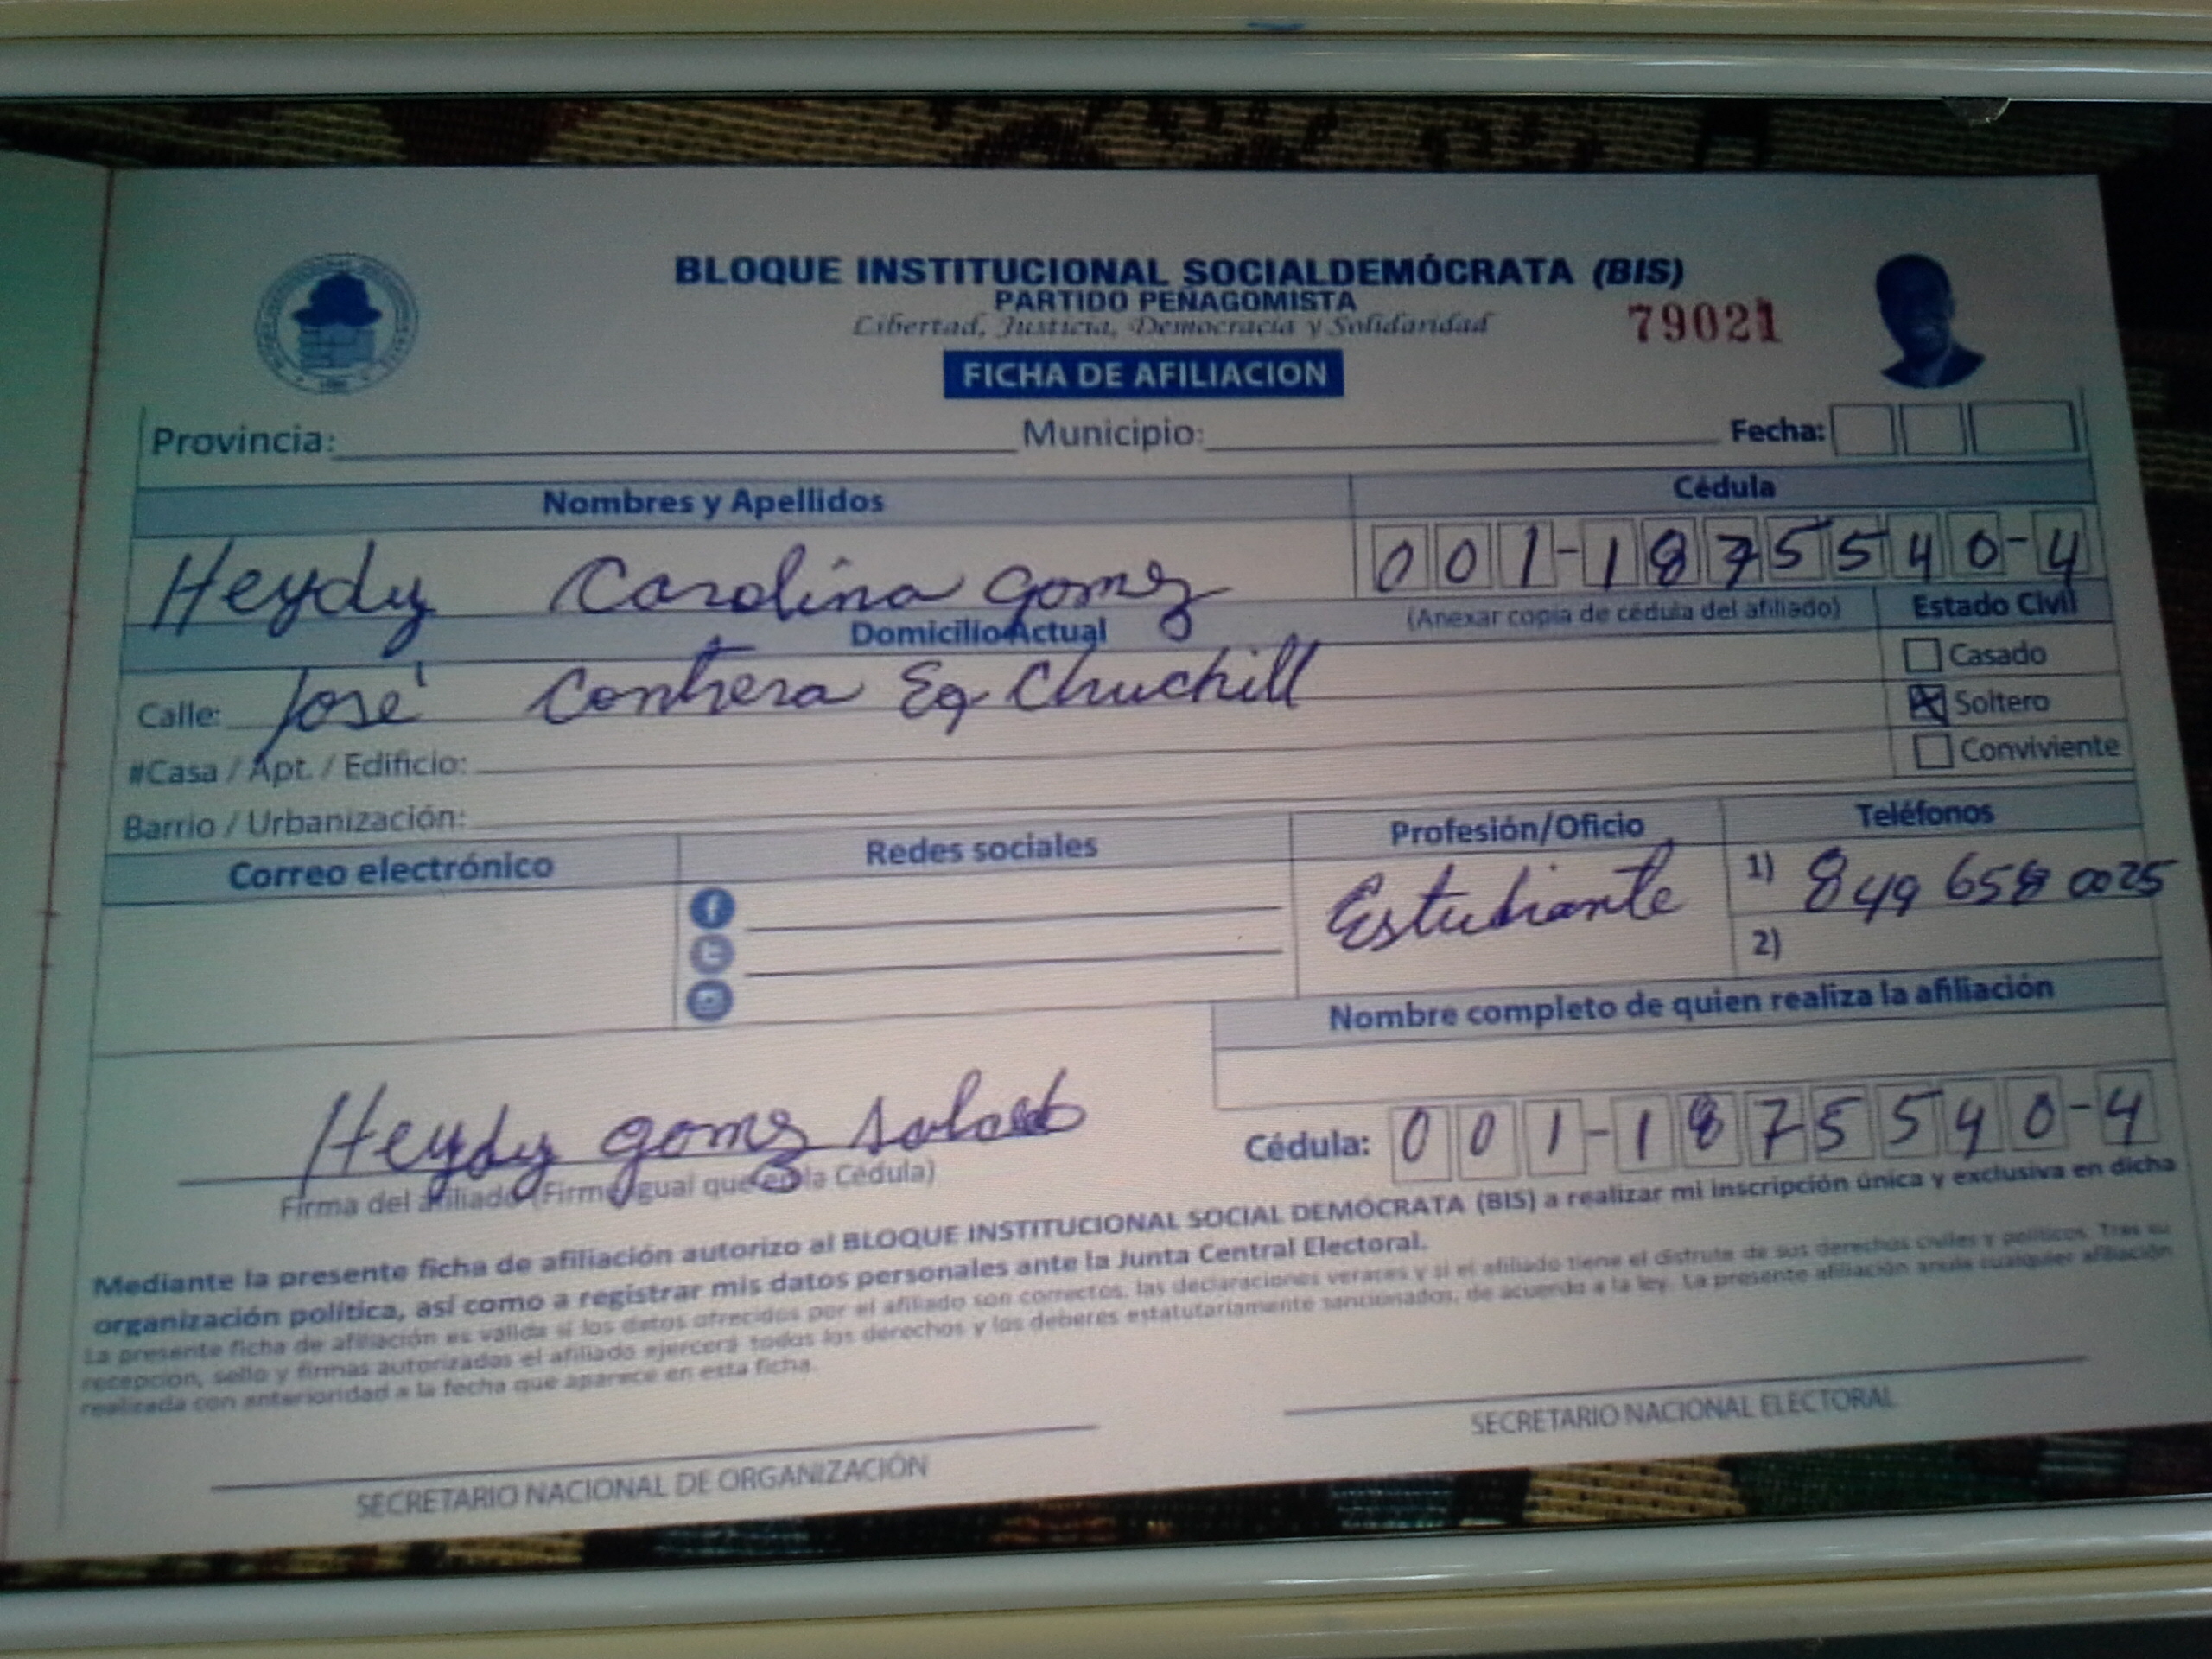 BLOQUE INSTITUCIONAL SOCIALDEMÓCRATA (BIS)
PARTIDO PEÑAGOMISTA
Libertad, Justicia, Democracia y Solidaridad
79021
FICHA DE AFILIACION
Provincia: Municipio: Fecha:
Nombres y Apellidos Cédula
Heydy Carolina gomez 001-1875540-4
Domicilio Actual (Anexar copia de cédula del afiliado) Estado Civil
Casado
Calle: José Contrera Eq Chuchill
Soltero
#Casa / Apt. / Edificio:
Conviviente
Barrio / Urbanización:
Correo electrónico Redes sociales Profesión/Oficio Teléfonos
Estudiante 1) 849 658 0025
2)
Nombre completo de quien realiza la afiliación
Heydy gomez
Cédula: 001-1875540-4
Firma del afiliado (Firma igual que en la Cédula)
Mediante la presente ficha de afiliación autorizo al BLOQUE INSTITUCIONAL SOCIAL DEMÓCRATA (BIS) a realizar mi inscripción única y exclusiva en dicha
organización política, así como a registrar mis datos personales ante la Junta Central Electoral.
La presente ficha de afiliación es valida si los datos ofrecidos por el afiliado son correctos, las declaraciones veraces y si el afiliado tiene el disfrute de sus derechos civiles y políticos. Tras su
recepcion, sello y firmas autorizadas el afiliado ejercerá todos los derechos y los deberes estatutariamente sancionados, de acuerdo a la ley. La presente afiliación anula cualquier afiliación
realizada con anterioridad a la fecha que aparece en esta ficha.
SECRETARIO NACIONAL DE ORGANIZACIÓN
SECRETARIO NACIONAL ELECTORAL